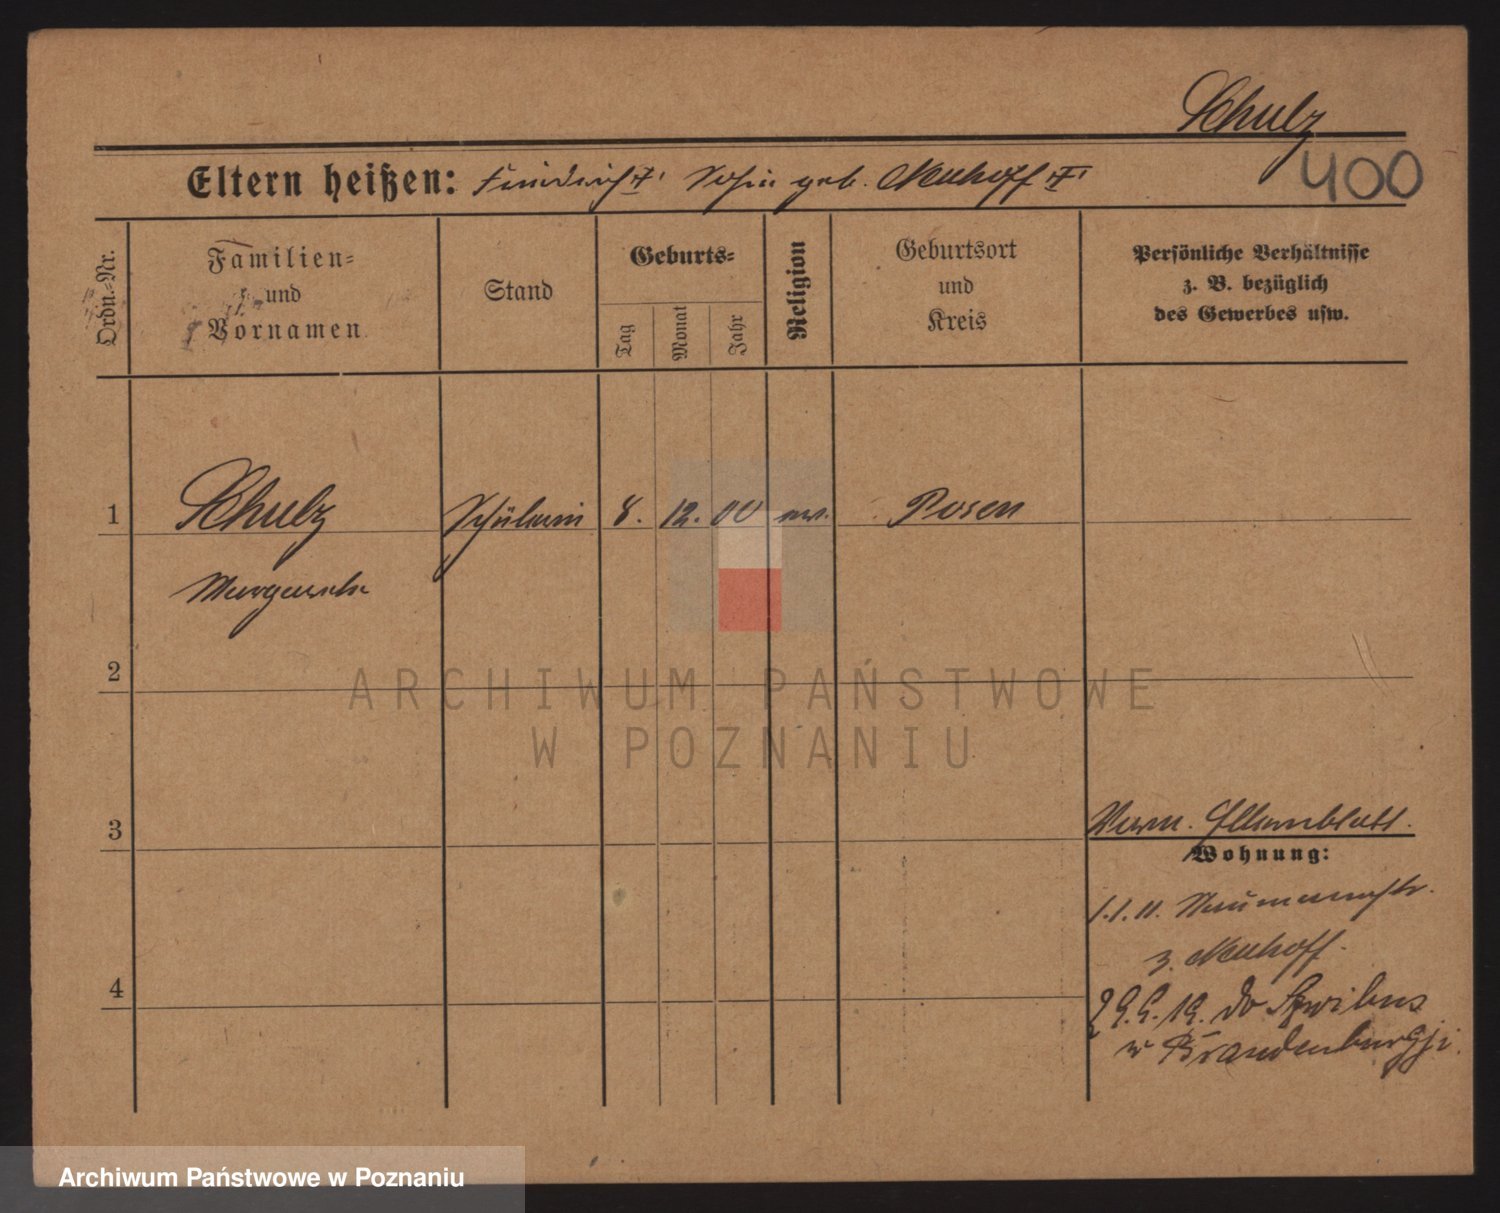 Schulz
400
Eltern heißen: Friedrich † Sofie geb. Neuhoff †
Ordn.-Nr.
Familien-
und
Vornamen
Stand
Geburts-
Tag
Monat
Jahr
Religion
Geburtsort
und
Kreis
Persönliche Verhältnisse
z. B. bezüglich
des Gewerbes usw.
1 Schulz Schülerin 8. 12. 00 ev. Posen
Margarete
2
ARCHIWUM PAŃSTWOWE
W POZNANIU
3
Elternblatt.
Wohnung:
1.1.11. Naumannstr.
z. Neuhoff.
4
do Szwibus
w Brandenburgji.
Archiwum Państwowe w Poznaniu